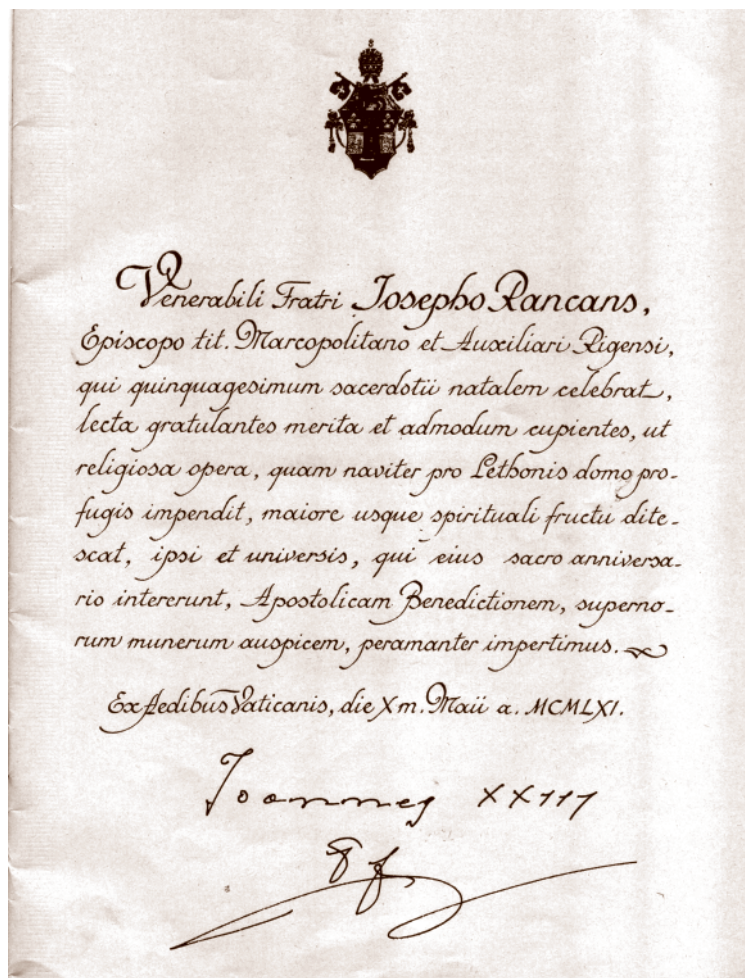 Venerabili Fratri Josepho Rancans,
Episcopo tit. Marcopolitano et Auxiliari Rigensi,
qui quinquagesimum sacerdotii natalem celebrat,
lecta gratulantes merita et admodum cupientes, ut
religiosa opera, quam naviter pro Lethonis domo pro-
fugis impendit, maiore usque spirituali fructu dite-
scat, ipsi et universis, qui eius sacro anniversa-
rio intererunt, Apostolicam Benedictionem, superno-
rum munerum auspicem, peramanter impertimus.
Ex Aedibus Vaticanis, die X m. Maii a. MCMLXI.
Joannes XXIII